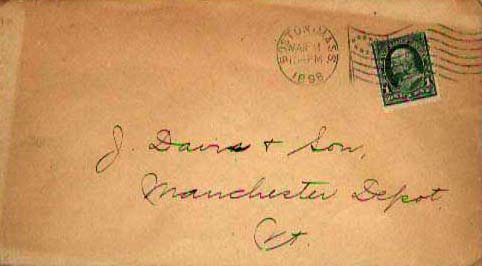 BOSTON, MASS
1898
J. Davis & Son,
Manchester Depot,
Vt.